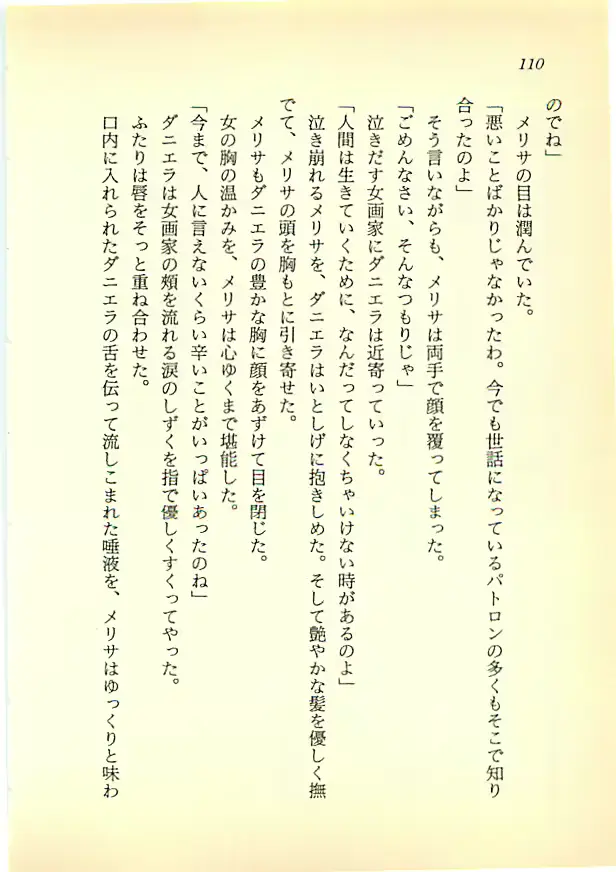 110
のでね」
メリサの目は潤んでいた。
「悪いことばかりじゃなかったわ。今でも世話になっているパトロンの多くもそこで知り
合ったのよ」
そう言いながらも、メリサは両手で顔を覆ってしまった。
「ごめんなさい、そんなつもりじゃ」
泣きだす女画家にダニエラは近寄っていった。
「人間は生きていくために、なんだってしなくちゃいけない時があるのよ」
泣き崩れるメリサを、ダニエラはいとしげに抱きしめた。そして艶やかな髪を優しく撫
でて、メリサの頭を胸もとに引き寄せた。
メリサもダニエラの豊かな胸に顔をあずけて目を閉じた。
女の胸の温かみを、メリサは心ゆくまで堪能した。
「今まで、人に言えないくらい辛いことがいっぱいあったのね」
ダニエラは女画家の頬を流れる涙のしずくを指で優しくすくってやった。
ふたりは唇をそっと重ね合わせた。
口内に入れられたダニエラの舌を伝って流しこまれた唾液を、メリサはゆっくりと味わ